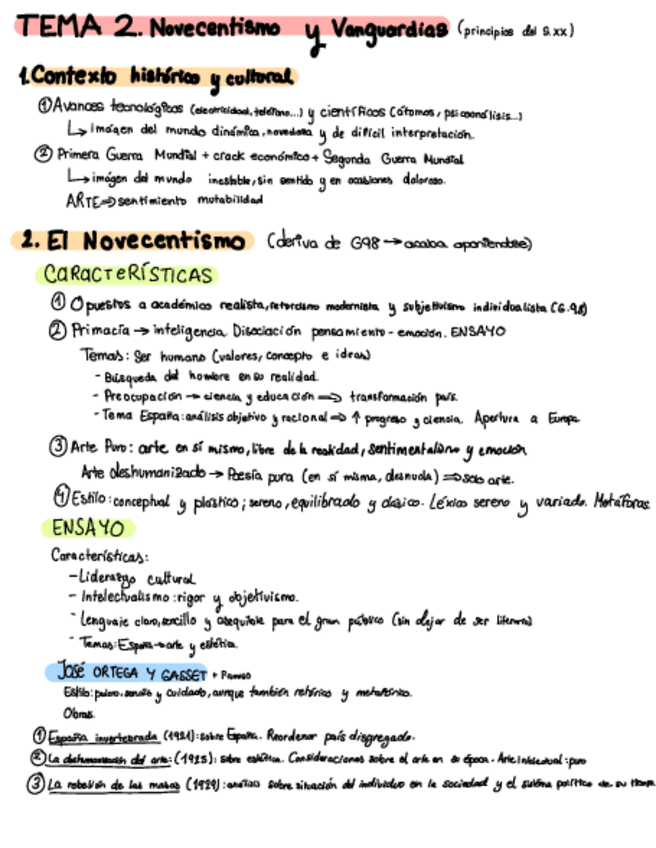 TEMA 2. Novecentismo y Vanguardias (principios del S.XX)
1. Contexto histórico y cultural
① Avances tecnológicos (electricidad, teléfono...) y científicos (átomos, psicoanálisis...)
↳ Imagen del mundo dinámica, novedosa y de difícil interpretación.
② Primera Guerra Mundial + crack económico + Segunda Guerra Mundial
↳ imágen del mundo inestable, sin sentido y en ocasiones doloroso.
ARTE ⇒ sentimiento mutabilidad
2. El Novecentismo (deriva de G98 → acaba oponiendose)
CARACTERÍSTICAS
① Opuestos a académico realista, retorcismo modernista y subjetivismo individualista (G.98)
② Primacía → inteligencia. Disociación pensamiento - emoción. ENSAYO
Temas: Ser humano (valores, concepto e ideas)
- Búsqueda del hombre en su realidad.
- Preocupación → ciencia y educación ⇒ transformación país.
- Tema España: análisis objetivo y racional ⇒ ↑ progreso y ciencia. Apertura a Europa
③ Arte Puro: arte en sí mismo, libre de la realidad, sentimentalismo y emoción
Arte deshumanizado → Poesía pura (en sí misma, desnuda) ⇒ solo arte.
④ Estilo: conceptual y plástico; sereno, equilibrado y clásico. Léxico sereno y variado. Metáforas
ENSAYO
Características:
- Liderazgo cultural
- Intelectualismo: rigor y objetivismo.
- Lenguaje claro, sencillo y asequible para el gran público (sin dejar de ser literario)
- Temas: España → arte y estética.
JOSÉ ORTEGA Y GASSET + Famoso
Estilo: pulcro, sencillo y cuidado, aunque también retórico y metafórico.
Obras
① España invertebrada (1921): sobre España. Reordenar país disgregado.
② La deshumanización del arte: (1925): sobre estética. Consideraciones sobre el arte en su época. Arte intelectual: puro
③ La rebelión de las masas (1929): análisis sobre situación del individuo en la sociedad y el sistema político de su tiempo